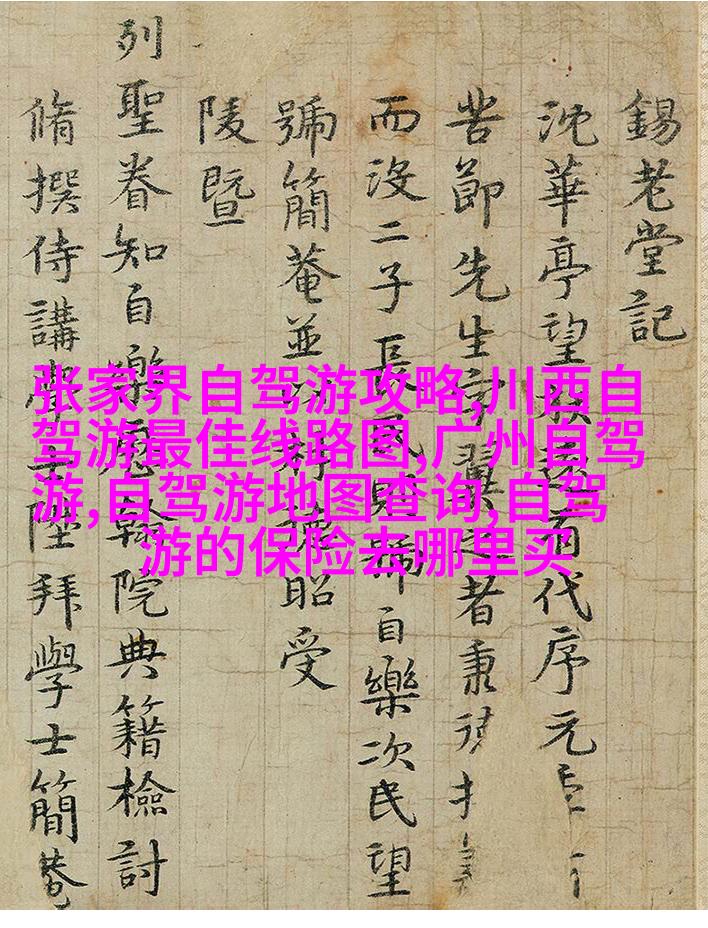 錫老堂記
沈華亭望有代序元
苦節先生翼者秉
而沒二子長民則號自樂次民望
號簡菴並昭受
陵暨
列聖眷知自樂翰院典籍檢討
脩撰侍講學士陞拜學士簡菴
张家界自驾游攻略,川西自
驾游最佳线路图,广州自驾
游,自驾游地图查询,自驾
游的保险去哪里买